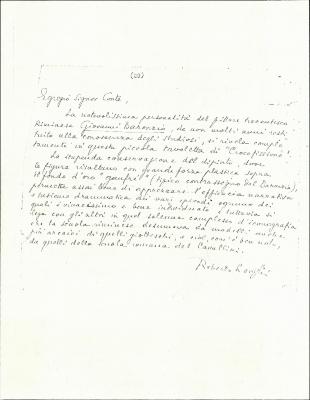 (20)
Egregio Signor Conte,
La notevolissima personalità del pittore trecentesco
riminese Giovanni Baronzio, da non molti anni resti-
tuito alla conoscenza degli studiosi, si rivela comple
tamente in questa piccola tavoletta di "Crocefissione".
La stupenda conservazione del dipinto, dove
le figure risaltano con grande forza plastica sopra
il fondo d'oro "gaufré" (tipico contrassegno del Baronzio),
permette assai bene di apprezzare l'efficacia narrativa
e tensione drammatica dei vari episodi ognuno dei
quali è vivacissimo e bene individuato e tuttavia si
lega con gli altri in quel solenne complesso d'iconografia
che la scuola riminese desumeva da modelli anche
più arcaici di quelli giotteschi, e cioè, com'è ben noto,
da quelli della scuola romana del Cavallini.
Roberto Longhi